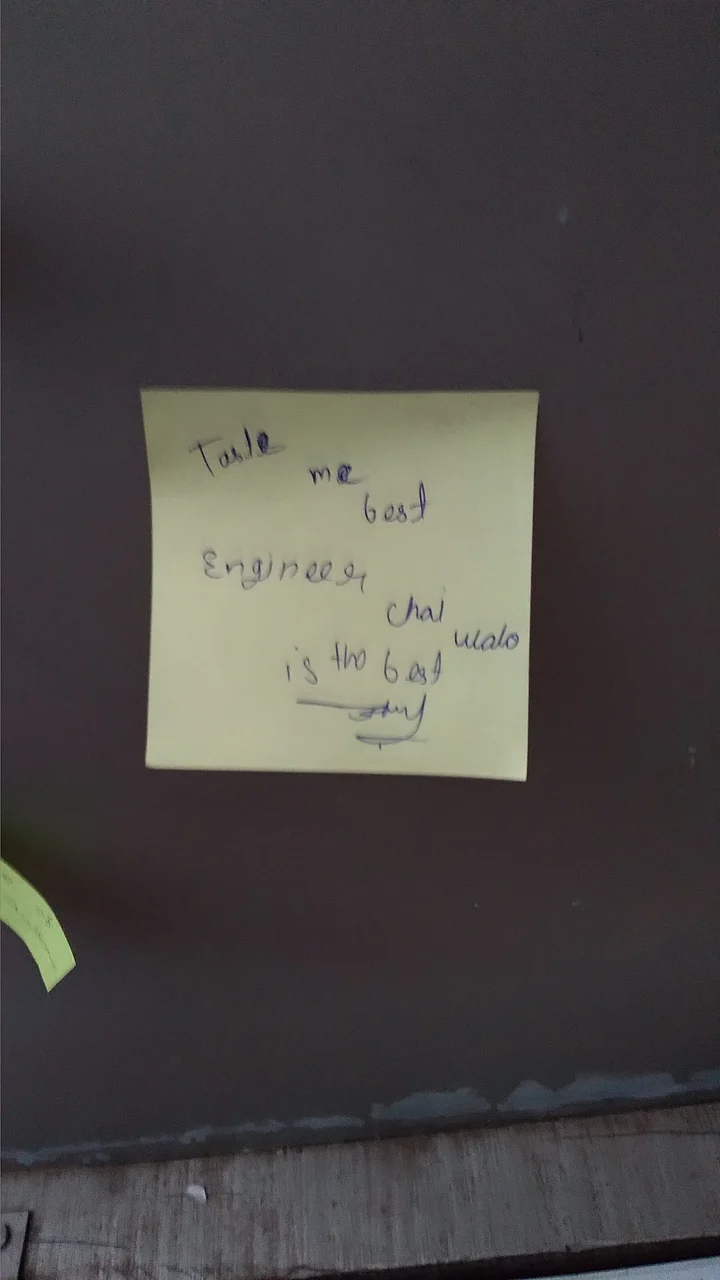 Taste me best
Engineer
chai walo
is the best